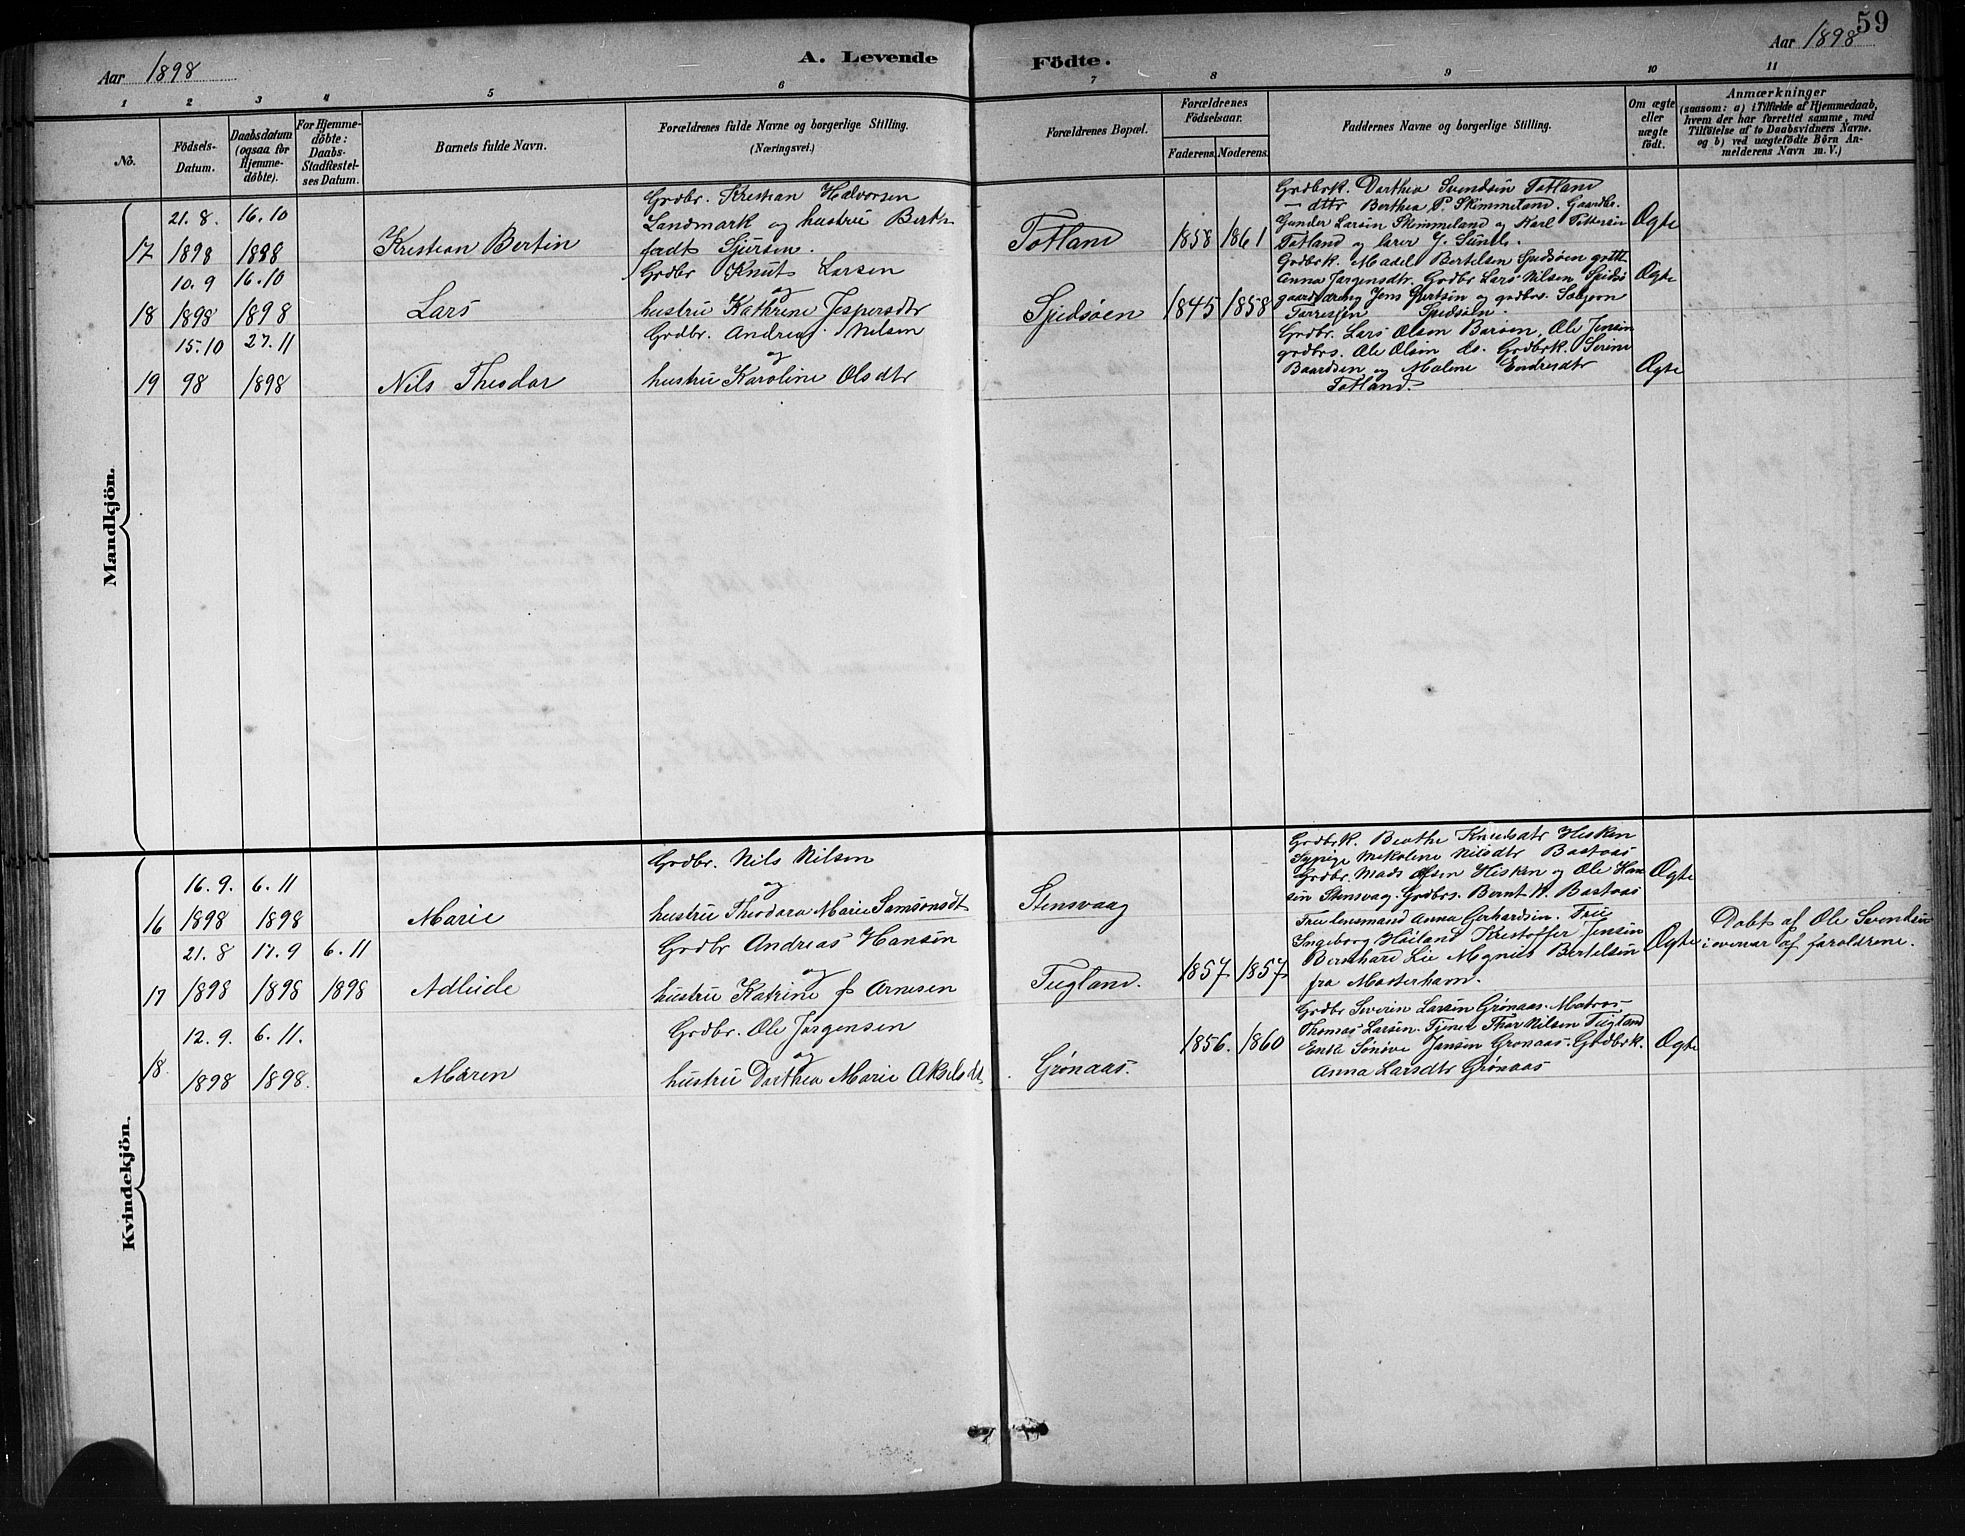 59
Aar 1898
A. Levende Födte.
Aar 1898
1 2 3 4 5 6 7 8 9 10 11
No.
Födsels-Datum.
Daabsdatum (ogsaa for Hjemme-döbte).
For Hjemme-döbte: Daabs-Stadfæstel-ses Datum.
Barnets fulde Navn.
Forældrenes fulde Navne og borgerlige Stilling.
(Næringsvei.)
Forældrenes Bopæl.
Forældrenes Födselsaar.
Faderens. Moderens.
Faddernes Navne og borgerlige Stilling.
Om ægte eller uægte födt.
Anmærkninger
(saasom: a) i Tilfælde af Hjemmedaab,
hvem der har forrettet samme, med
Tilföielse af to Daabsvidners Navne.
og b) ved uægtefödte Börn An-
melderens Navn m. V.)
Mandkjön.
17
21.8.
1898
16.10
1898
Kristian Bertin
Grdbr. Kristian Halvorsen
Landmark og hustru Berth
födt Sjursen.
Totland
1858 1861
Grdbrk. Dorthea Svendsen Totland
— dttr Berthea P. Skimmeland. Gaardbr.
Gunder Larsen Skimmeland og Karl Pettersen
Totland og lærer J. Sund.
Ægte
18
10.9
1898
16.10
1898
Lars
Grdbr Knut Larsen
og
hustru Kathrine Jespersdtr
Spidsöen
1845 1858
Grdbrk. Madel Bertelsen Spidsöen
Anna Jørgensdtr. Grdbr Lars Nilsen Spidsö
gaardsdreng Jens og grdbrs.
Spidsöen.
Ægte
19
15.10
98
27.11
1898
Nils Theodor
Grdbr. Andreas Nilsen
og
hustru Karoline Olsdtr
Grdbr. Lars Olsen Baröen, Ole Jensen
grdbrs. Ole Olsen ds. Grdbrk. Serine
Baardsen og Malene Endresdtr
Totland.
Ægte
Kvindekjön.
16
16.9.
1898
6.11
1898
Marie
Grdbr. Nils Nilsen
og
hustru Theodora Marie Samsonsdt
Stensvaag
Grdbrk. Beathe Knudsdtr Hisken
Mikoline Nilsdtr Bastaas
Grdbr. Mads Olsen Hisken og Ole Han
sen Stensvag. Grdbrs. Bernt N. Bastaas
Ægte
17
21.8
1898
17.9
1898
6.11
1898
Adleide
Grdbr Andreas Hansen
og
hustru Katrine f. Arnesen
Tugland.
1857 1857
Fru lensmand Anna Gerhardsen. Fru
Ingeborg Höiland Kristoffer Jensen
Bernhard Lie Magnus Bertelsen
fra Mosterhamn.
Ægte
Döbt af Ole Svendsen
i overvær af forældrene.
18
12.9.
1898
6.11.
1898.
Maren
Grdbr. Ole Jørgensen
og
hustru Dorthea Marie Akselsdt
Grönaas.
1856. 1860
Grdbr Severin Larsen Grönaas. Matros
Thomas Larsen. Tjener Thor Nilsen Tugland
Enke Sönöve Jansen Grönaas. Grdbrk.
Anna Larsdtr Grönaas
Ægte